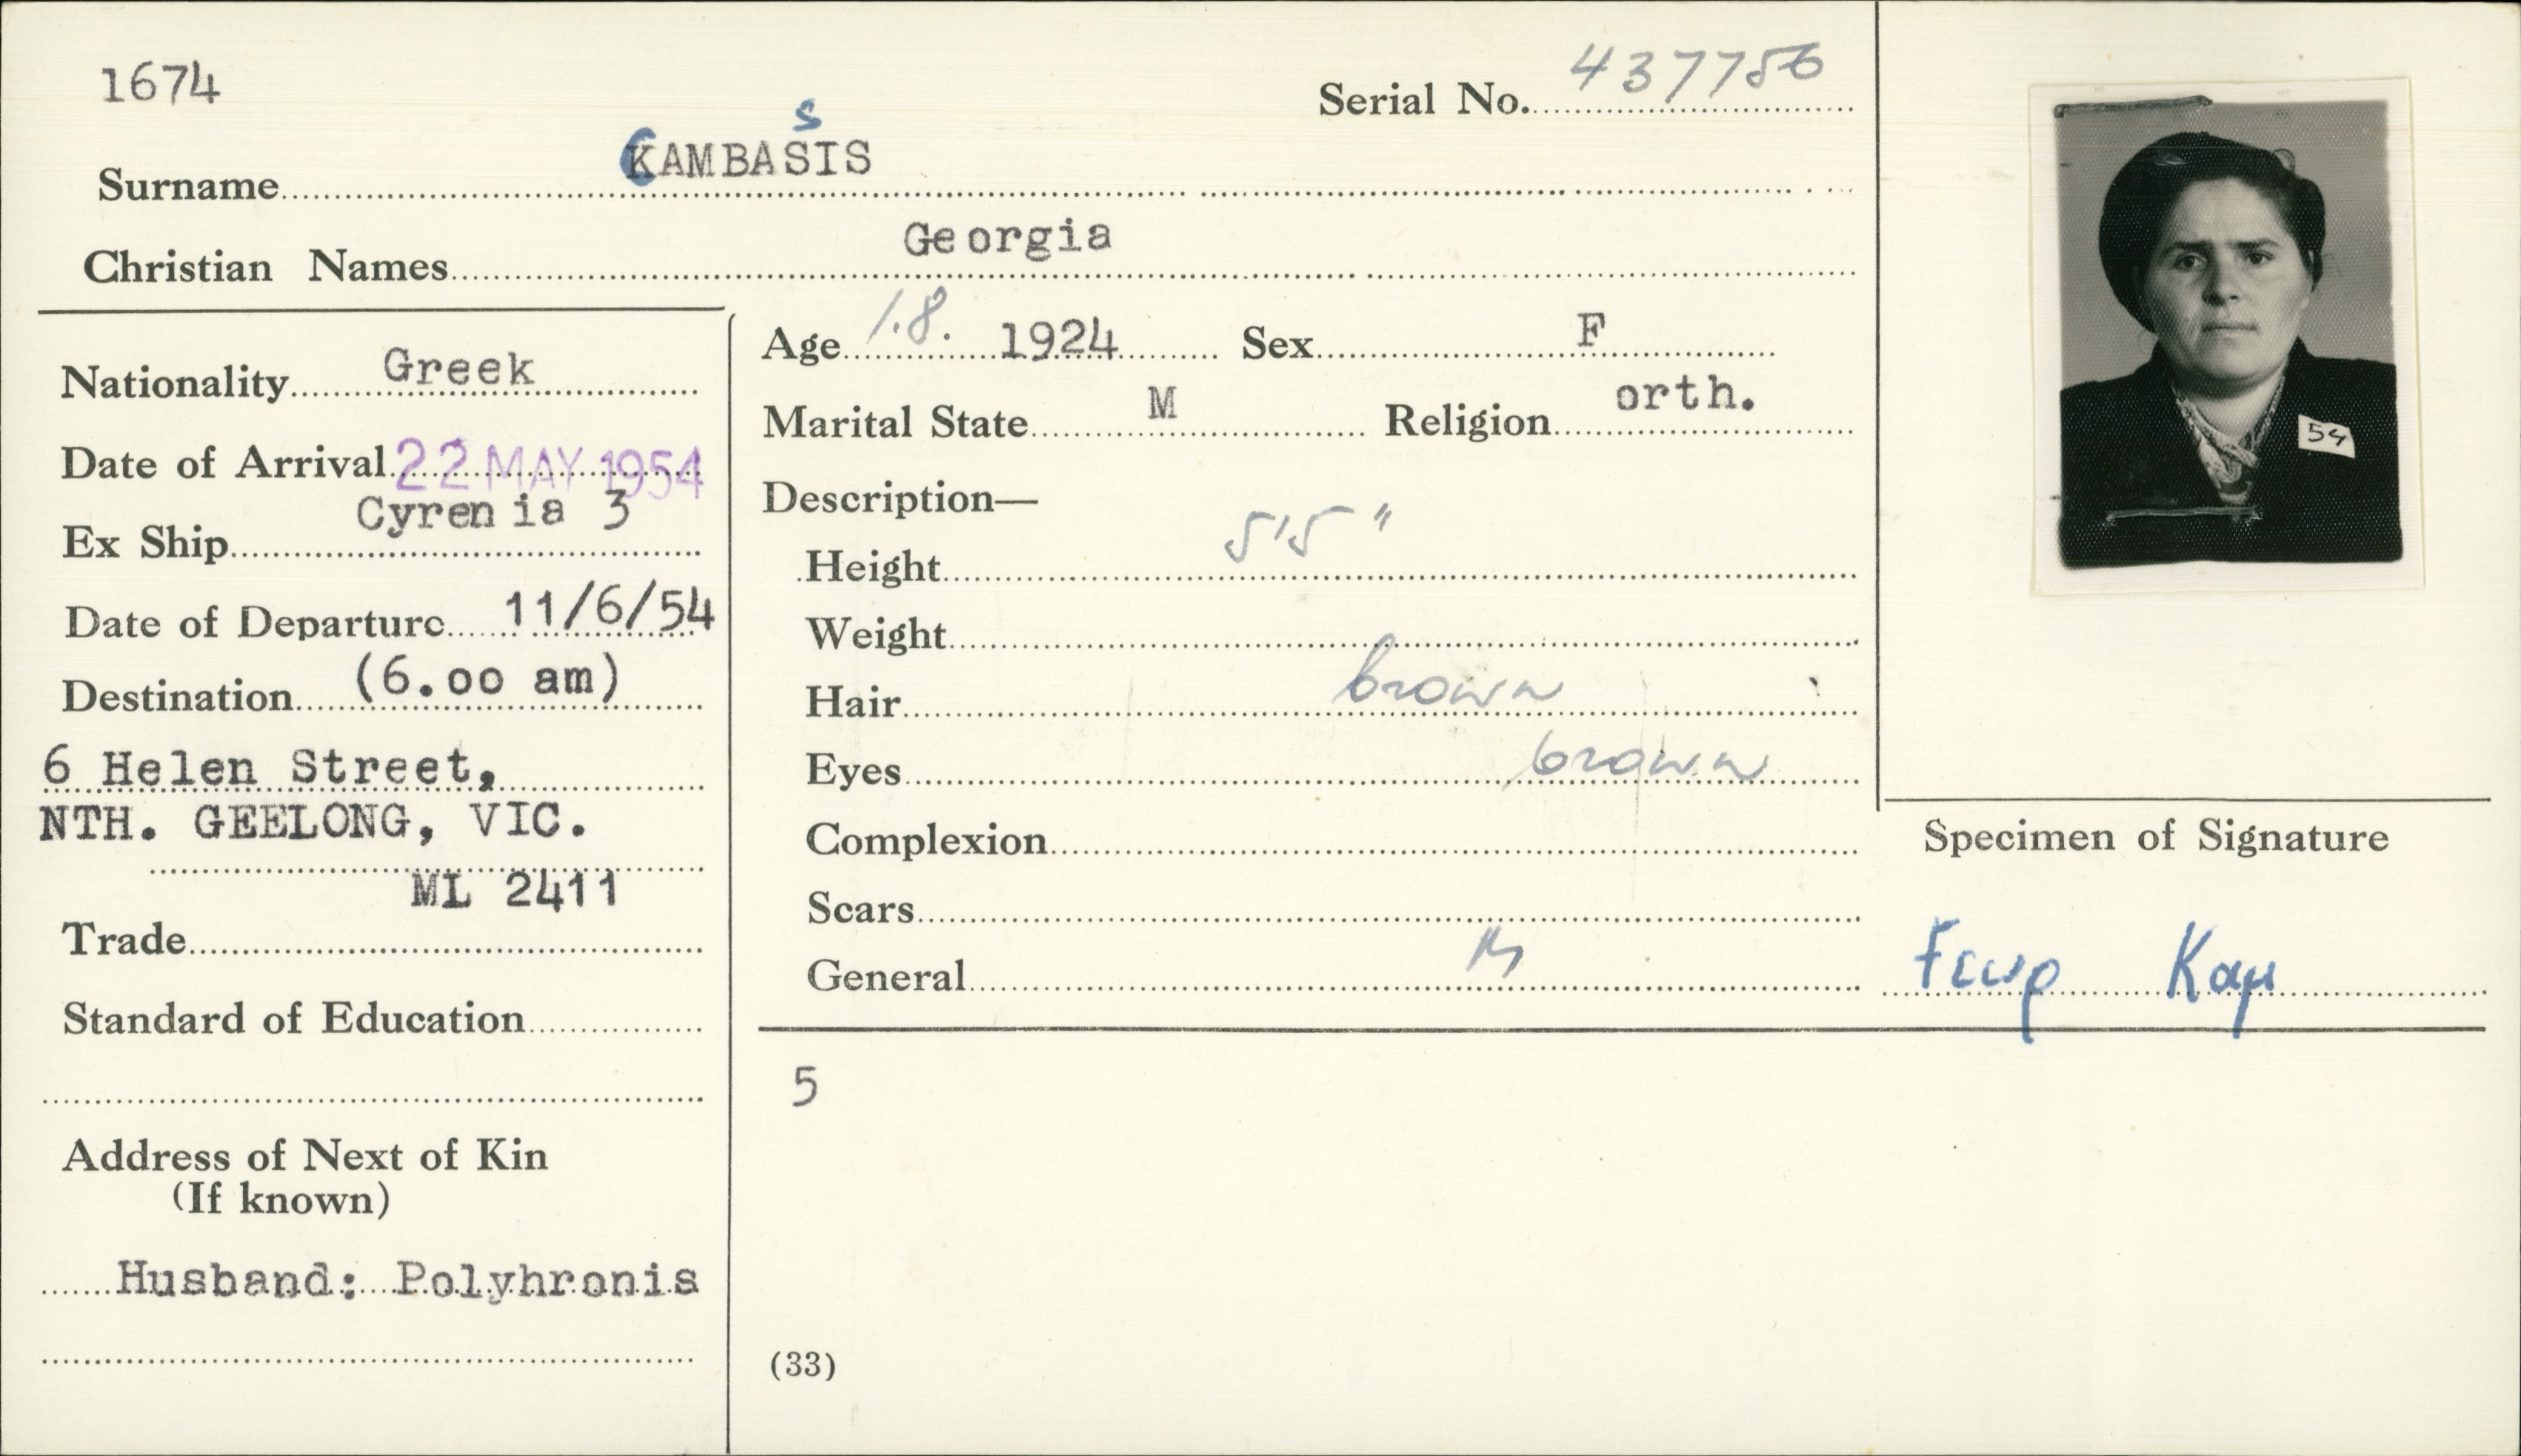 1674
Serial No. 437756
S
Surname KAMBASIS
Christian Names Georgia
Nationality Greek
Date of Arrival 22 MAY 1954
Ex Ship Cyrenia 3
Date of Departure 11/6/54
Destination (6.00 am)
6 Helen Street,
NTH. GEELONG, VIC.
ML 2411
Trade
Standard of Education
Address of Next of Kin
(If known)
Husband: Polyhronis
Age 1.8. 1924 Sex F
Marital State M Religion orth.
Description—
Height 5'5"
Weight
Hair brown
Eyes brown
Complexion
Scars
General
5
(33)
54
Specimen of Signature
Γεωρ Καμ